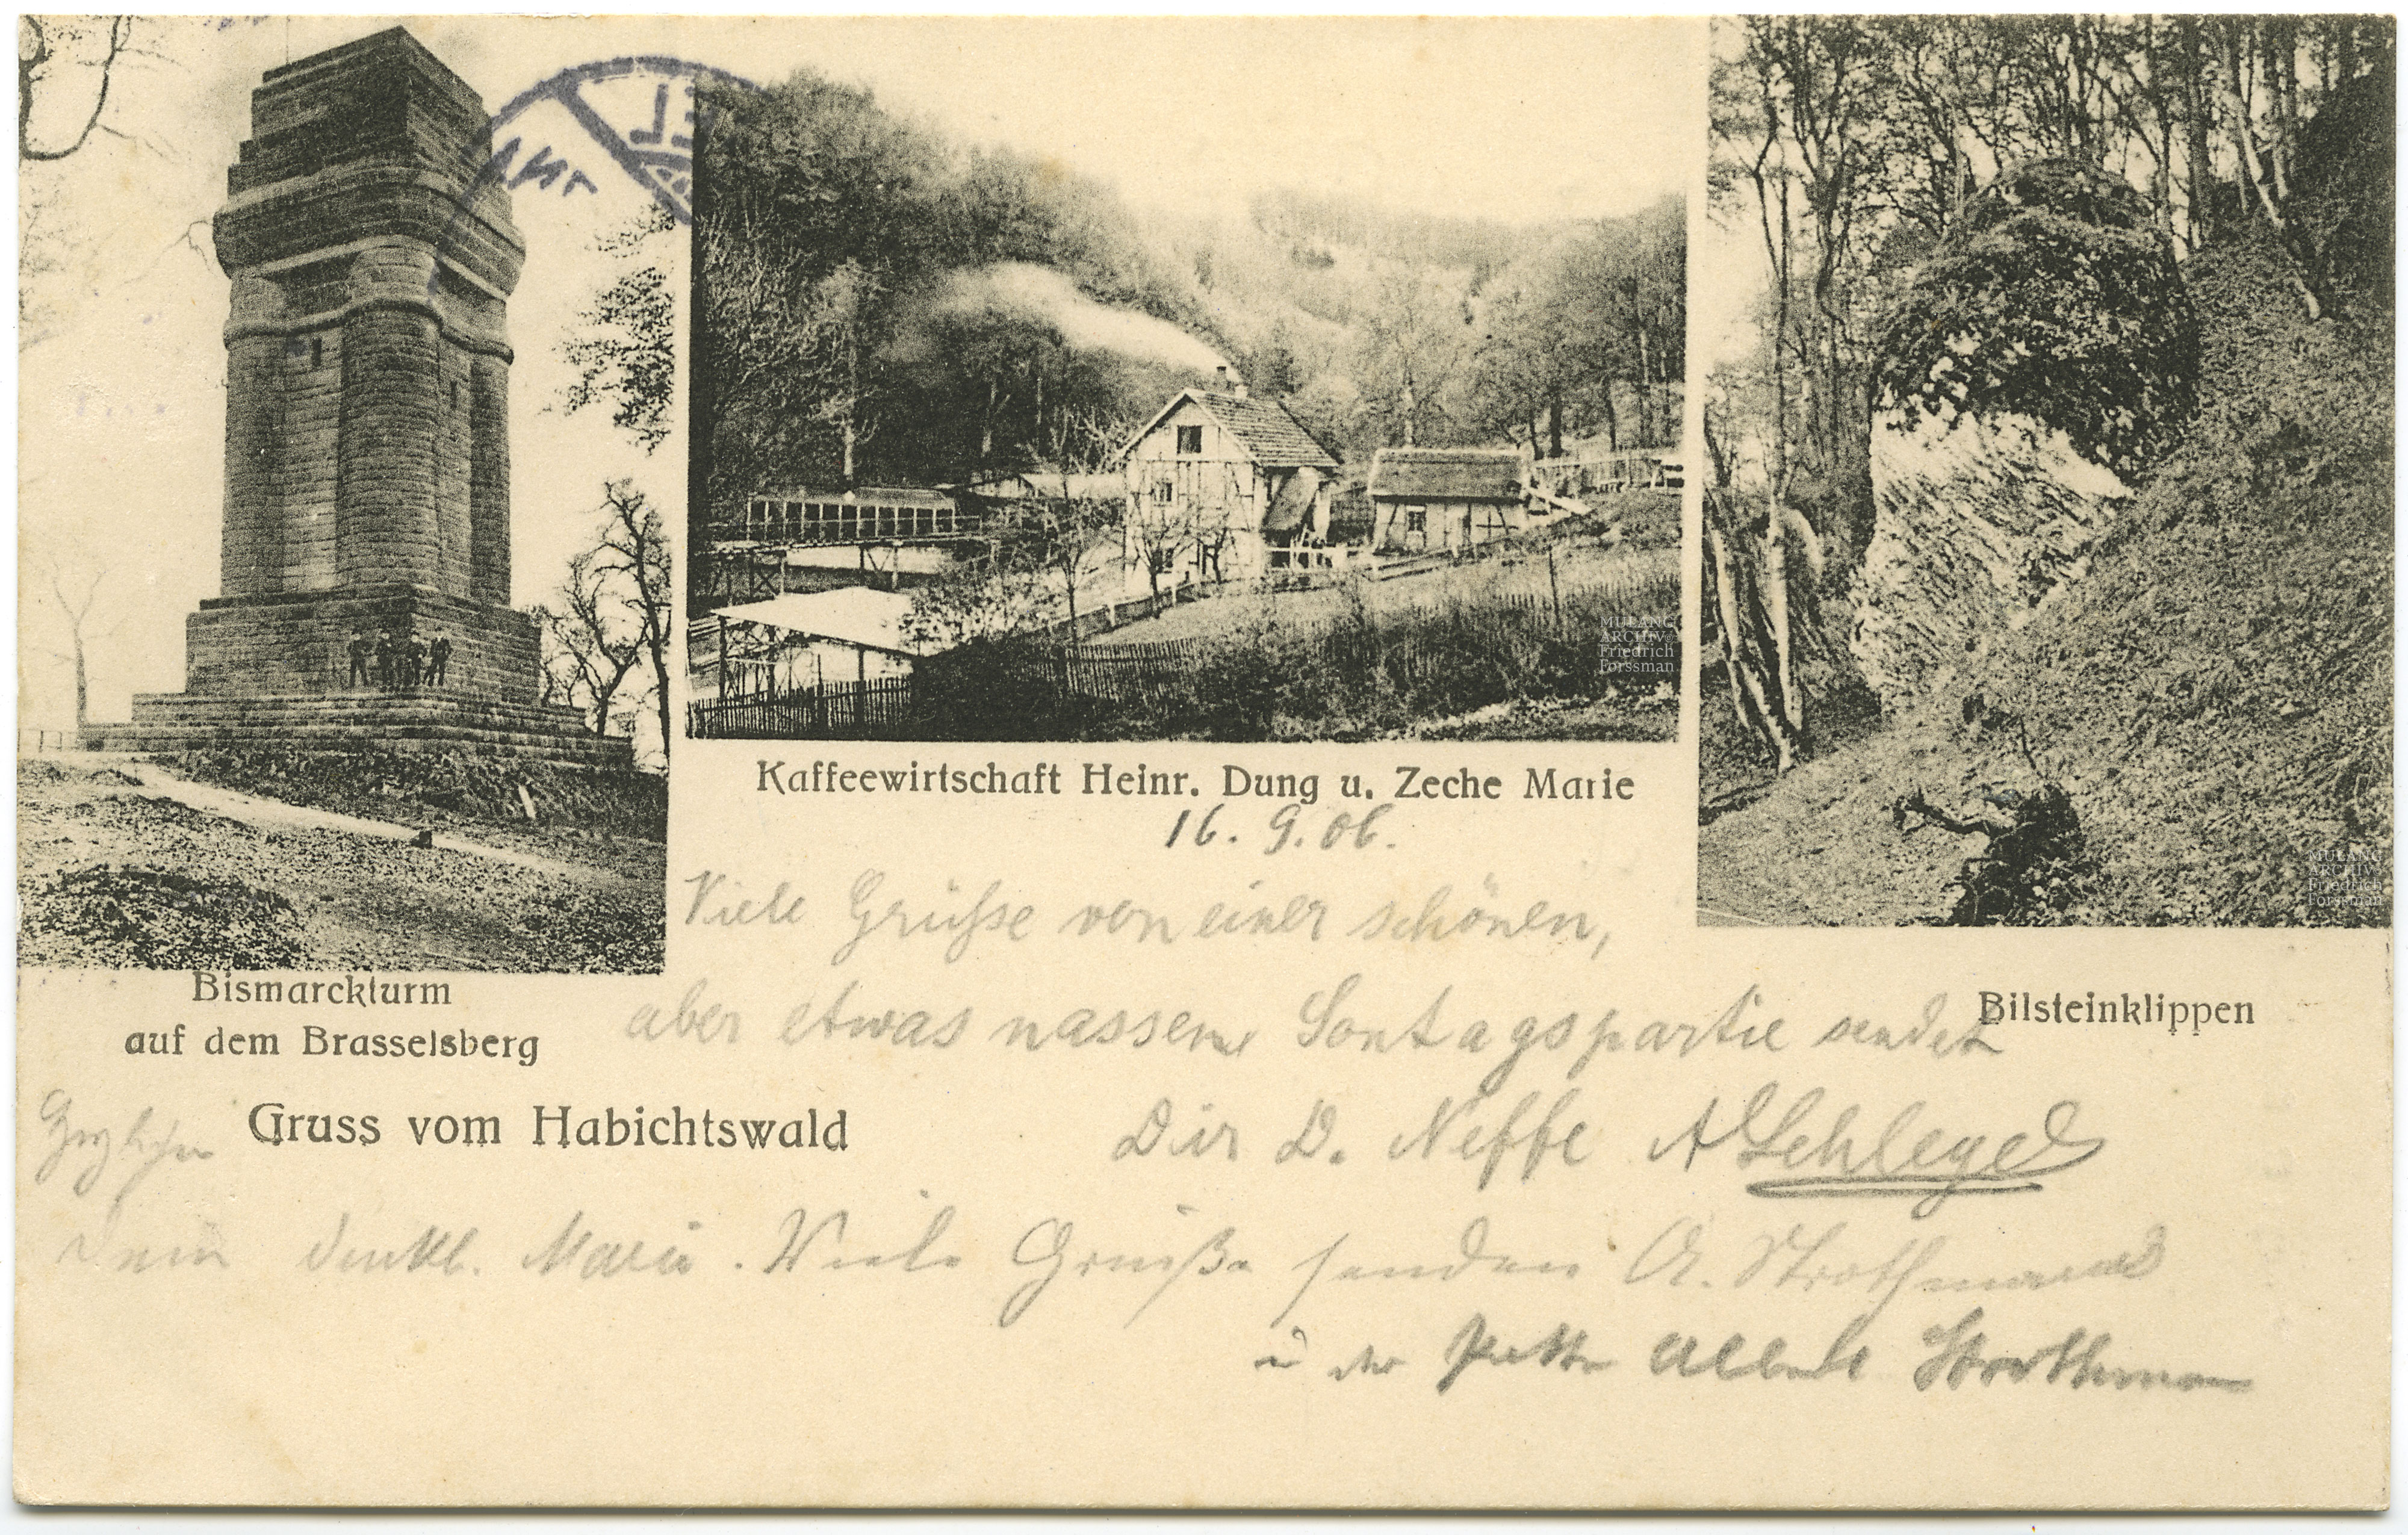 MULANG
ARCHIV
Friedrich
Forssman
Kaffeewirtschaft Heinr. Dung u. Zeche Marie
16. 9. 06.
MULANG
ARCHIV
Friedrich
Forssman
Viele Grüße von einer schönen,
Bismarckturm
auf dem Brasselsberg
Bilsteinklippen
aber etwas nassen Sontagspartie sendet
Gruss vom Habichtswald
Dir D. Neffe A Schlegel
Viele Grüße senden A. Strothmann
u der Albert Strothmann